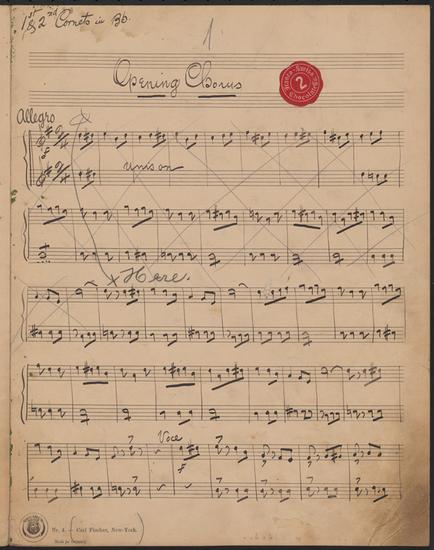 1st & 2nd Cornets in Bb.
1
Opening Chorus
2
Allegro
unison
Here.
Voce
Nr. 4. Carl Fischer, New-York.